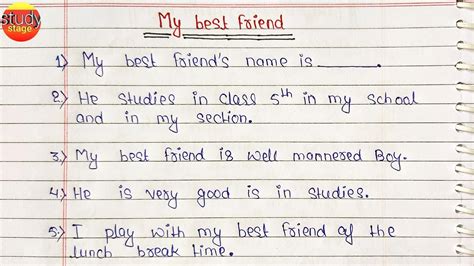 study
stage
My best friend
1) My best friend's name is ________.
2) He studies in class 5th in my school
and in my section.
3) My best friend is well mannered Boy.
4) He is very good is in studies.
5) I play with my best friend of the
lunch break time.